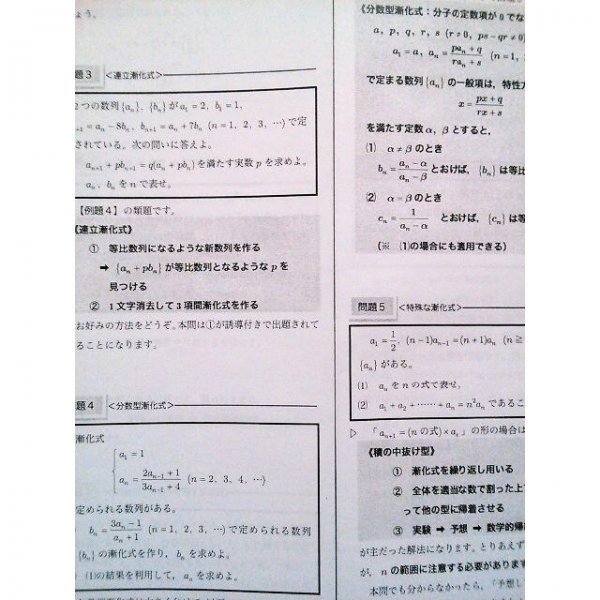 ょう。
題3 <連立漸化式>
2つの数列{aₙ}，{bₙ}がa₁=2，b₁=1，
ₙ₊₁=aₙ-8bₙ，bₙ₊₁=aₙ+7bₙ (n=1，2，3，…)で定
されている。次の問いに答えよ。
aₙ₊₁+pbₙ₊₁=q(aₙ+pbₙ)を満たす実数pを求めよ。
aₙ，bₙをnで表せ。
【例題4】の類題です。
《連立漸化式》
① 等比数列になるような新数列を作る
➡ {aₙ+pbₙ}が等比数列となるようなpを
見つける
② 1文字消去して3項間漸化式を作る
お好みの方法をどうぞ。本問は①が誘導付きで出題されて
ることになります。
題4 <分数型漸化式>
漸化式
a₁=1
aₙ=(2aₙ₋₁+1)/(3aₙ₋₁+4) (n=2，3，4，…)
定められる数列がある。
bₙ=(3aₙ-1)/(aₙ+1) (n=1，2，3，…)で定められる数列
{bₙ}の漸化式を作り，bₙを求めよ。
(1)の結果を利用して，aₙを求めよ。
《分数型漸化式：分子の定数項が0でな
a，p，q，r，s (r≠0，ps-qr≠0)
a₁=a，aₙ=(paₙ+q)/(raₙ+s) (n=1，
で定まる数列{aₙ}の一般項は，特性方
x=(px+q)/(rx+s)
を満たす定数α，βとすると，
(1) α≠βのとき
bₙ=(aₙ-α)/(aₙ-β)とおけば，{bₙ}は等比
(2) α=βのとき
cₙ=1/(aₙ-α) とおけば，{cₙ}は等
(※ (1)の場合にも適用できる)
問題5 <特殊な漸化式>
a₁=1/2，(n-1)aₙ₋₁=(n+1)aₙ (n≧
{aₙ}がある。
(1) aₙをnの式で表せ，
(2) a₁+a₂+……+aₙ=n²aₙであるこ
▷ 「aₙ₊₁=(nの式)×aₙ」の形の場合は
《積の中抜け型》
① 漸化式を繰り返し用いる
② 全体を適当な数で割った上
って他の型に帰着させる
③ 実験 → 予想 → 数学的帰
が主だった解法になります。とりあえず
が，nの範囲に注意する必要があります
本問でも分からなかったら，「予想し